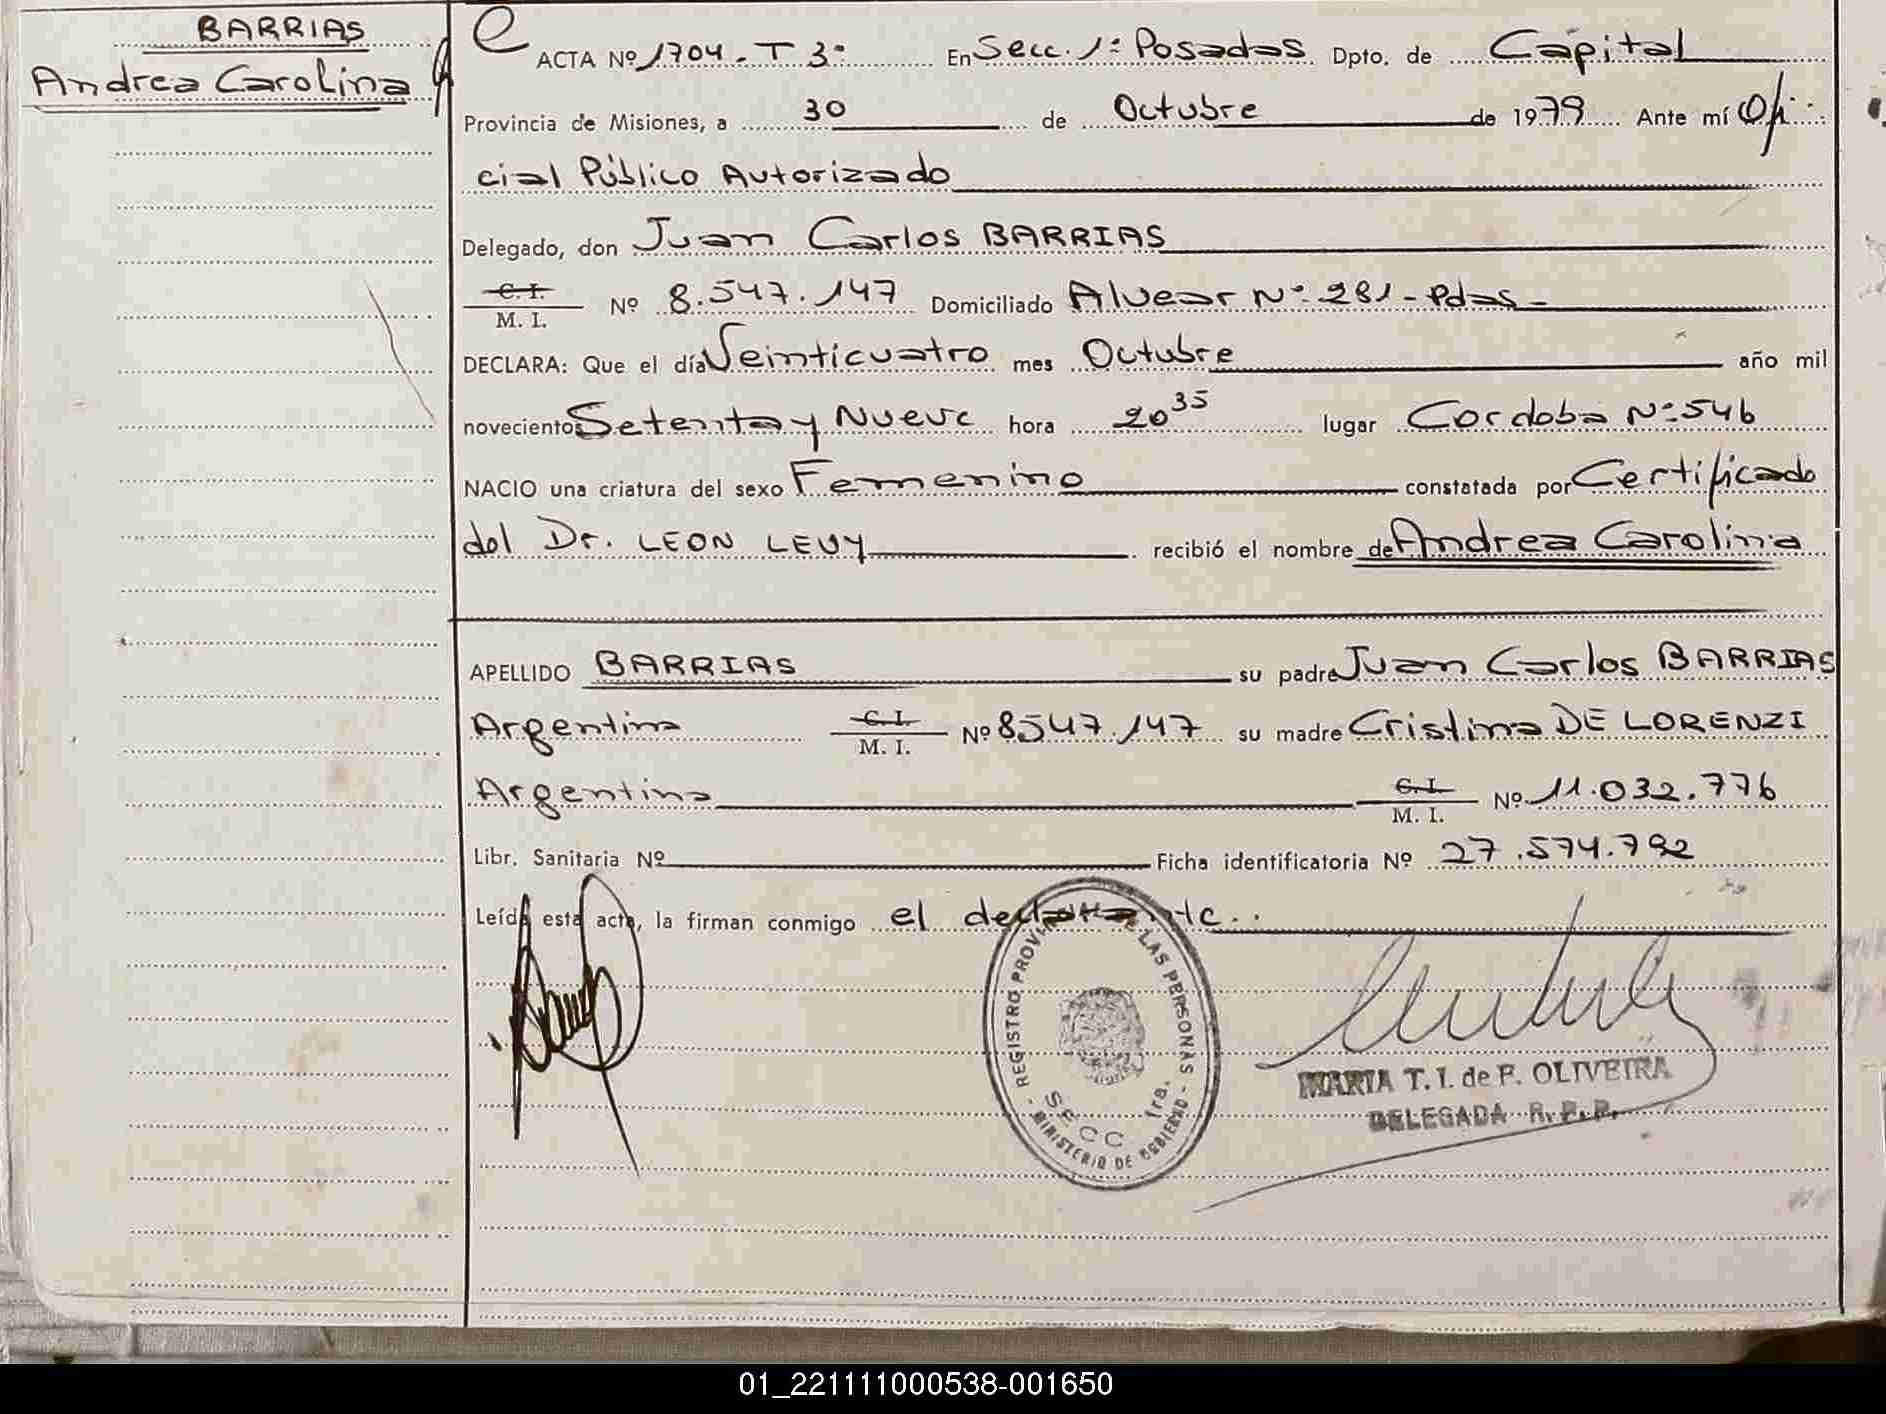 BARRIAS
Andrea Carolina
ACTA Nº 1704 - T 3º En Secc. 1ª Posadas Dpto. de Capital
Provincia de Misiones, a 30 de Octubre de 1979 Ante mí Ofi
cial Público Autorizado
Delegado, don Juan Carlos BARRIAS
C. I.
M. I. Nº 8.547.147 Domiciliado Alvear Nº 281 - Pdas -
DECLARA: Que el día Veinticuatro mes Octubre año mil
novecientos Setenta y Nueve hora 20 35 lugar Cordoba Nº 546
NACIO una criatura del sexo Femenino constatada por Certificado
del Dr. LEON LEVY recibió el nombre de Andrea Carolina
APELLIDO BARRIAS su padre Juan Carlos BARRIAS
Argentino C. I.
M. I. Nº 8547.147 su madre Cristina DE LORENZI
Argentina C. I.
M. I. Nº 11.032.776
Libr. Sanitaria Nº Ficha identificatoria Nº 27.574.792
Leída esta acta, la firman conmigo el declarante..
REGISTRO PROVINCIAL DE LAS PERSONAS - MINISTERIO DE GOBIERNO -
SECC 1ra.
MARIA T. I. de P. OLIVEIRA
DELEGADA R. P. P.
01_221111000538-001650